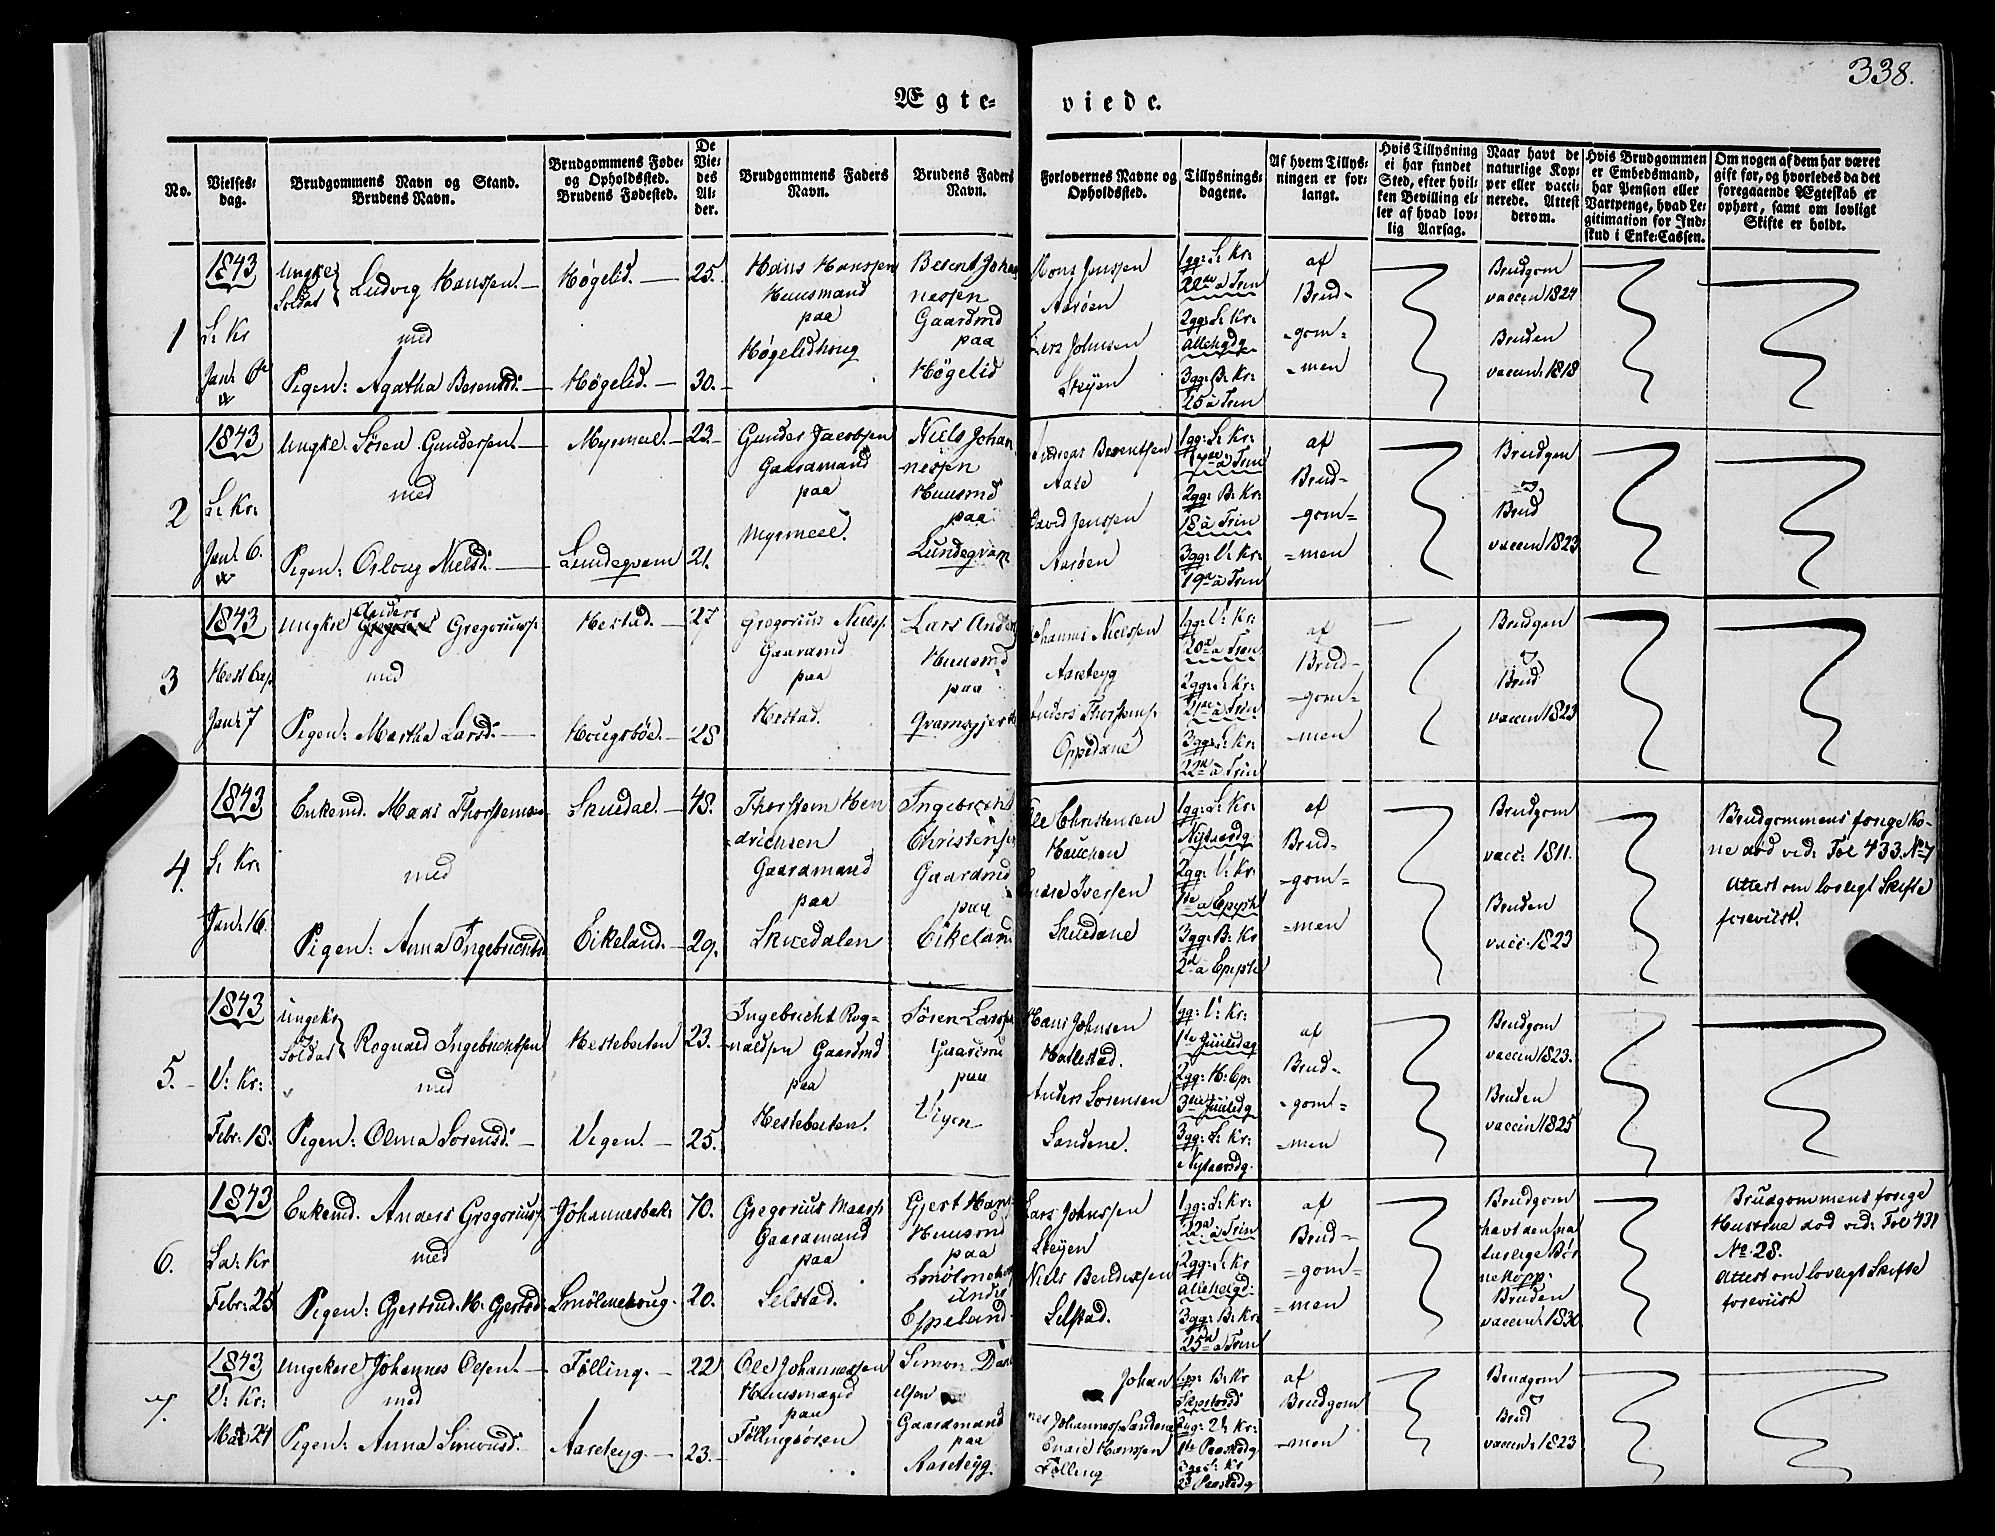 338.
Ægte-
viede.
No.
Vielses-
dag.
Brudgommens Navn og Stand.
Brudens Navn.
Brudgommens Føde-
og Opholdssted.
Brudens Fødested.
De
Vie-
des
Al-
der.
Brudgommens Faders
Navn.
Brudens Faders
Navn.
Forlovernes Navne og
Opholdssted.
Tillysnings-
dagene.
Af hvem Tillys-
ningen er for-
langt.
Hvis Tillysning
ei har fundet
Sted, efter hvil-
ken Bevilling el-
ler af hvad lov-
lig Aarsag.
Naar havt de
naturlige Kop-
per eller vacci-
nerede. Attest
derom.
Hvis Brudgommen
er Embedsmand,
har Pension eller
Vartpenge, hvad Le-
gitimation for Ind-
skud i Enke-Cassen.
Om nogen af dem har været
gift før, og hvorledes da det
foregaaende Ægteskab er
ophørt, samt om lovligt
Skifte er holdt.
1
1843
S: Kr
Jan: 6te
Ungkr
Soldat
Ludvig Hanssen.
med
Pigen: Agatha Berentsd:
Høgelid.
Høgelid.
25.
30.
Hans Hanssen
Huusmand
paa
Høgelidhoug
Berent Johan
nessen
Gaardmd
paa
Høgelid
Mons Jenssen
Aarøen
Lars Johnsen
Steyen
1gg: S: Kr:
à Trin
2gg: S: Kr:
Allehgdg
3gg: B: Kr:
25 à Trin
af
Brud-
-gom-
-men
Brudgom
vaccin 1824
Bruden
vaccin: 1818
2
1843
S: Kr:
Jan: 6.
Ungkr. Søren Gundersen.
med
Pigen: Osloug Nielsd:
Myrmeel.
Lundeqvam
23.
21.
Gunder Jacobsen
Gaardmand
paa
Myrmeel.
Niels Johan
nessen
Huusmd
paa
Lundeqvam
Andreas Berentsen
Aase
David Jenssen
Aarøen
1gg: S: Kr:
17de à Trin
2gg: B: Kr:
18 à Trin
3gg: V: Kr:
19de à Trin
af
Brud-
-gom-
-men
Brudgom
og
Brud
vaccin 1823
3
1843
Hest Cap
Jan: 7
Anders
Ungkr Gregorius Gregoriuss:
med
Pigen: Martha Larsd:
Hestad.
Hougsbøe.
27
28
Gregorius Nielss.
Gaardmd
paa
Hestad.
Lars Anders
Huusmd
paa
Qvamsgjer
Johannes Nielssen
Aareteyg
Anders Thorstens:
Oppedane
1gg: V: Kr:
20de à Trin
2gg: S: Kr:
21de à Trin
3gg: S: Kr:
22de à Trin
af
Brud-
-gom-
-men
Brudgom
og
Brud
vaccin 1823
4.
1843
S: Kr:
Jan: 16.
Enkemd. Mads Thorstensen
med
Pigen: Anna Ingebrichtsd
Skuedal.
Eikeland.
48.
29.
Thorstein Hen
drichsen
Gaardmand
paa
Skuedalen
Ingebricht
Christens
Gaardmd
paa
Eikeland
Ole Christensen
Hauchen
Endre Iversen
Skuedane
1gg: S: Kr:
Nytaarsdg
2gg: V: Kr:
1te à Epiph
3gg: B: Kr
2d à Epiph
af
Brud-
-gom-
-men
Brudgom
vacc: 1811.
Bruden
vacc: 1823
Brudgommens forrige Ko-
ne død vid: Fol 433. No 7
Attest om lovligt Skifte
foreviist.
5.
1843
V: Kr:
Febr: 18.
Ungekr
Soldat
Rognald Ingebrichtsen
med
Pigen: Olina Sørensd:
Hesteboten
Vegen.
23.
25.
Ingebricht Rog-
naldsen Gaardmd
paa
Hesteboten.
Søren Larss
Gaardmd
paa
Vigen
Hans Johnsen
Hallestad.
Anders Sørensen
Sandene.
1gg: V: Kr:
1te Juuledag
2gg: H: Cp:
3die Juuledg
3gg: S: Kr:
Nytaarsdg.
af
Brud-
-gom-
-men
Brudgom
vaccin 1823.
Bruden
vaccin 1825
6.
1843
Sa: Kr
Febr: 25
Enkemd. Anders Gregoriuss.
med
Pigen: Gjertrud M: Gjertsd:
Johannesbak:
Smølmehoug.
70.
20.
Gregorius Madss
Gaardmand
paa
Selstad.
Gjert Hans
Huusmd
paa
Smølmeho
under
Espeland
Lars Johnssen
Steyen
Niels Bendixsen
Selstad.
1gg: S: Kr:
22de à Trin
2gg: S: Kr
Allehelgd.
3gg: B: Kr:
25de à Trin
af
Brud-
-gom-
-men
Brudgom
havt den na
turlige Bør
nekopp:
Bruden
vaccin: 1830
Brudgommens forrige
Hustrue død vid: Fol 431
No 28.
Attest om lovligt Skifte
foreviist
7.
1843
V: Kr:
Mai 24
Ungekarl Johannes Olsen.
med
Pigen: Anna Simonsd:
Følling.
Aareteyg.
22
23.
Ole Johannessen
Huusmand
paa
Føllingsøren
Simon Dani
elsen
Gaardmand
paa
Aareteyg
Johan
nes Johanness: Sandene
Endre Hanssen
Følling
1gg: B: Kr
2gg: V: Kr:
1te Paaskedg
3gg: S: Kr
2d Paaskedg
af
Brudgom
-men
Brudgom
og
Brud
vaccin: 1823